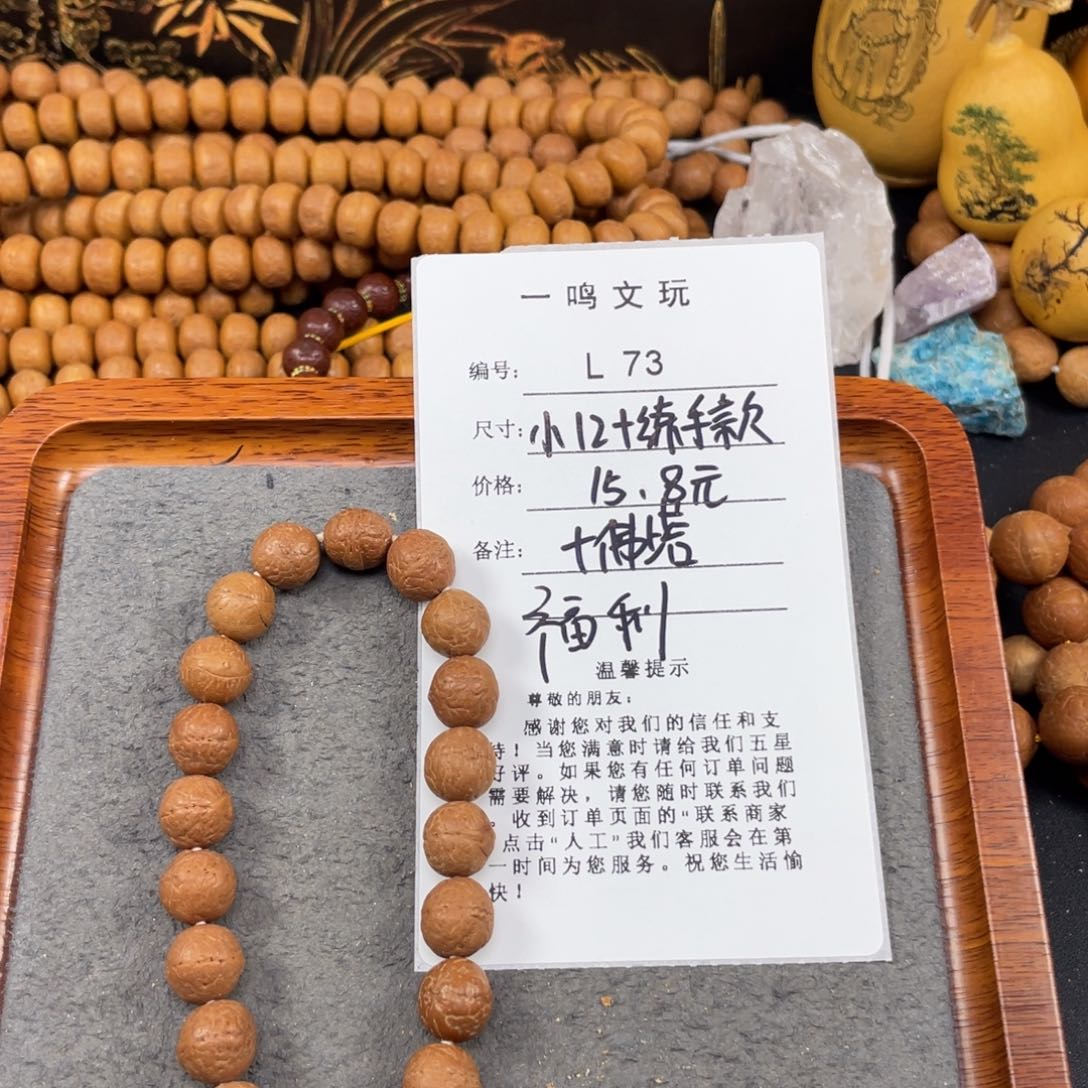 一鸣文玩
编号: L 73
尺寸: 小12+练手款
价格: 15.8元
备注: +佛塔
福利
温馨提示
尊敬的朋友:
感谢您对我们的信任和支
持！当您满意时请给我们五星
好评。如果您有任何订单问题
需要解决，请您随时联系我们
。收到订单页面的“联系商家
点击“人工”我们客服会在第
一时间为您服务。祝您生活愉
快！